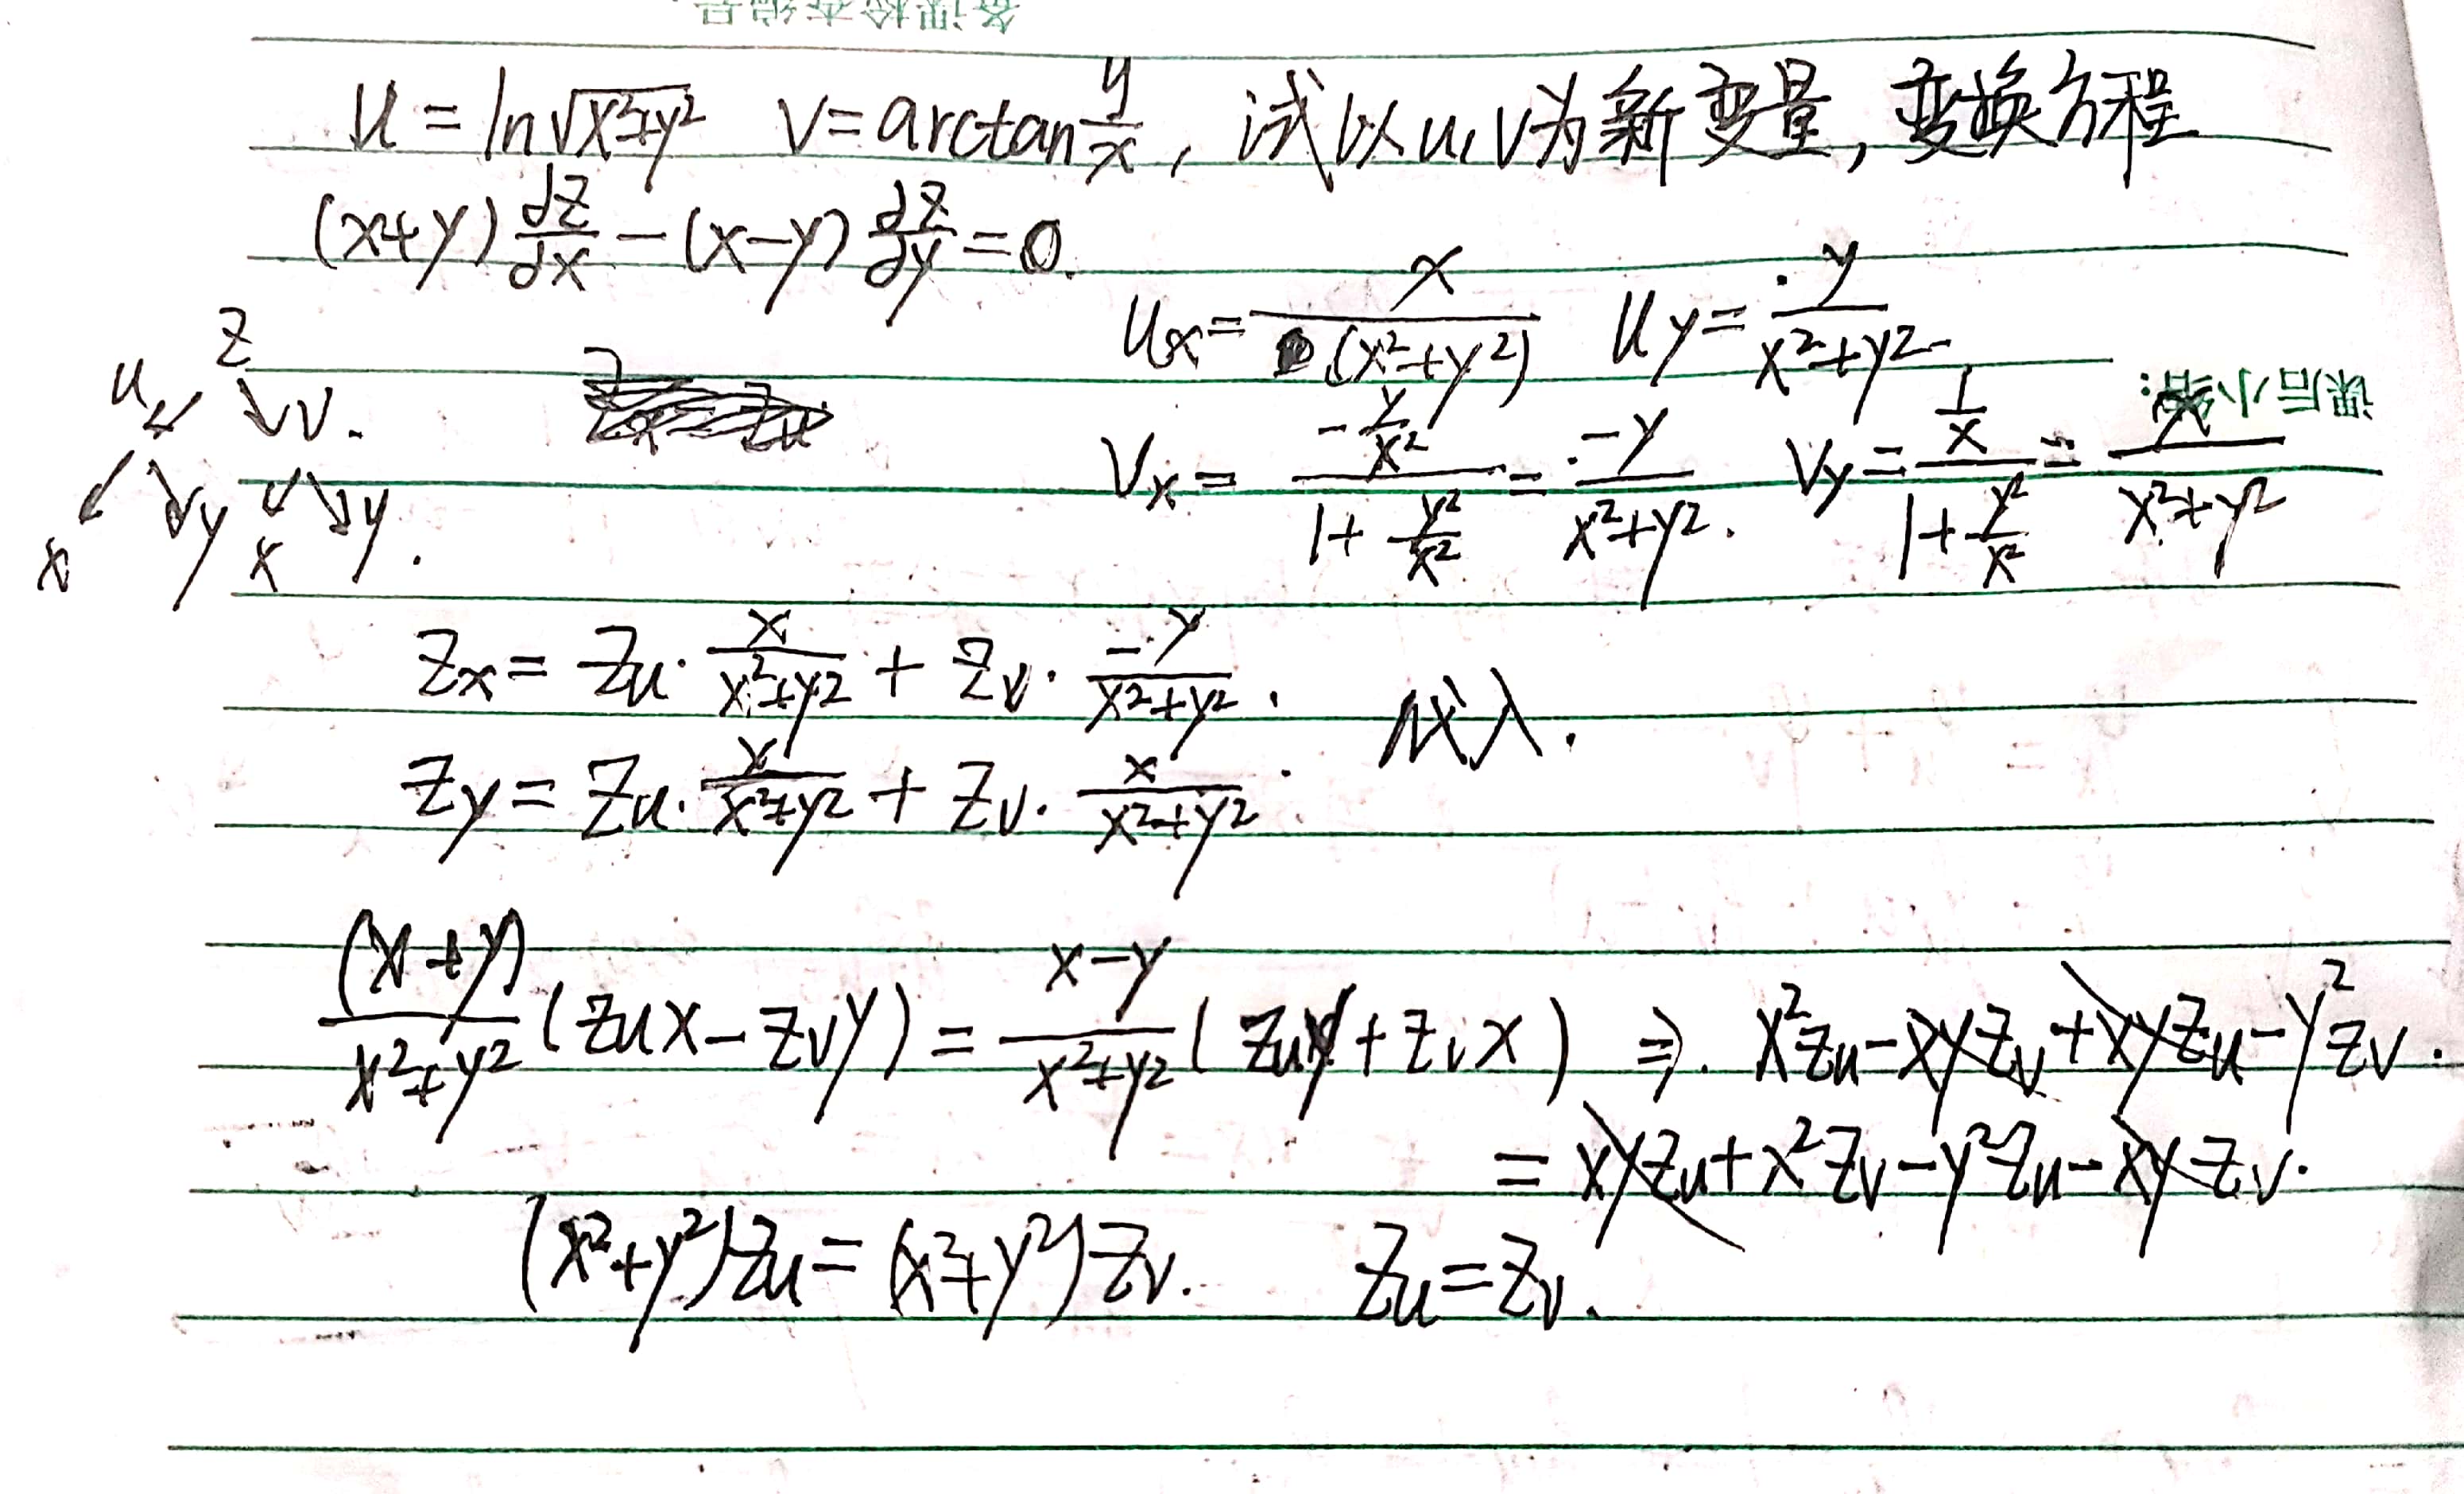 备课检查编号
u = ln√(x²+y²)  v = arctan y/x , 试以u,v为新变量, 变换方程
(x+y) ∂z/∂x − (x−y) ∂z/∂y = 0.
u_x = x/(x²+y²)  u_y = y/(x²+y²)
z
u v.
x y x y.
课后小结:
v_x = (−y/x²)/(1+y²/x²) = −y/(x²+y²).  v_y = (1/x)/(1+y²/x²) = x/(x²+y²)
z_x = z_u · x/(x²+y²) + z_v · −y/(x²+y²).  代入.
z_y = z_u · y/(x²+y²) + z_v · x/(x²+y²).
(x+y)/(x²+y²) (z_u x − z_v y) = (x−y)/(x²+y²) (z_u y + z_v x) ⇒. x²z_u − xyz_v + xyz_u − y²z_v.
= xyz_u + x²z_v − y²z_u − xyz_v.
(x²+y²)z_u = (x²+y²)z_v.  z_u = z_v.